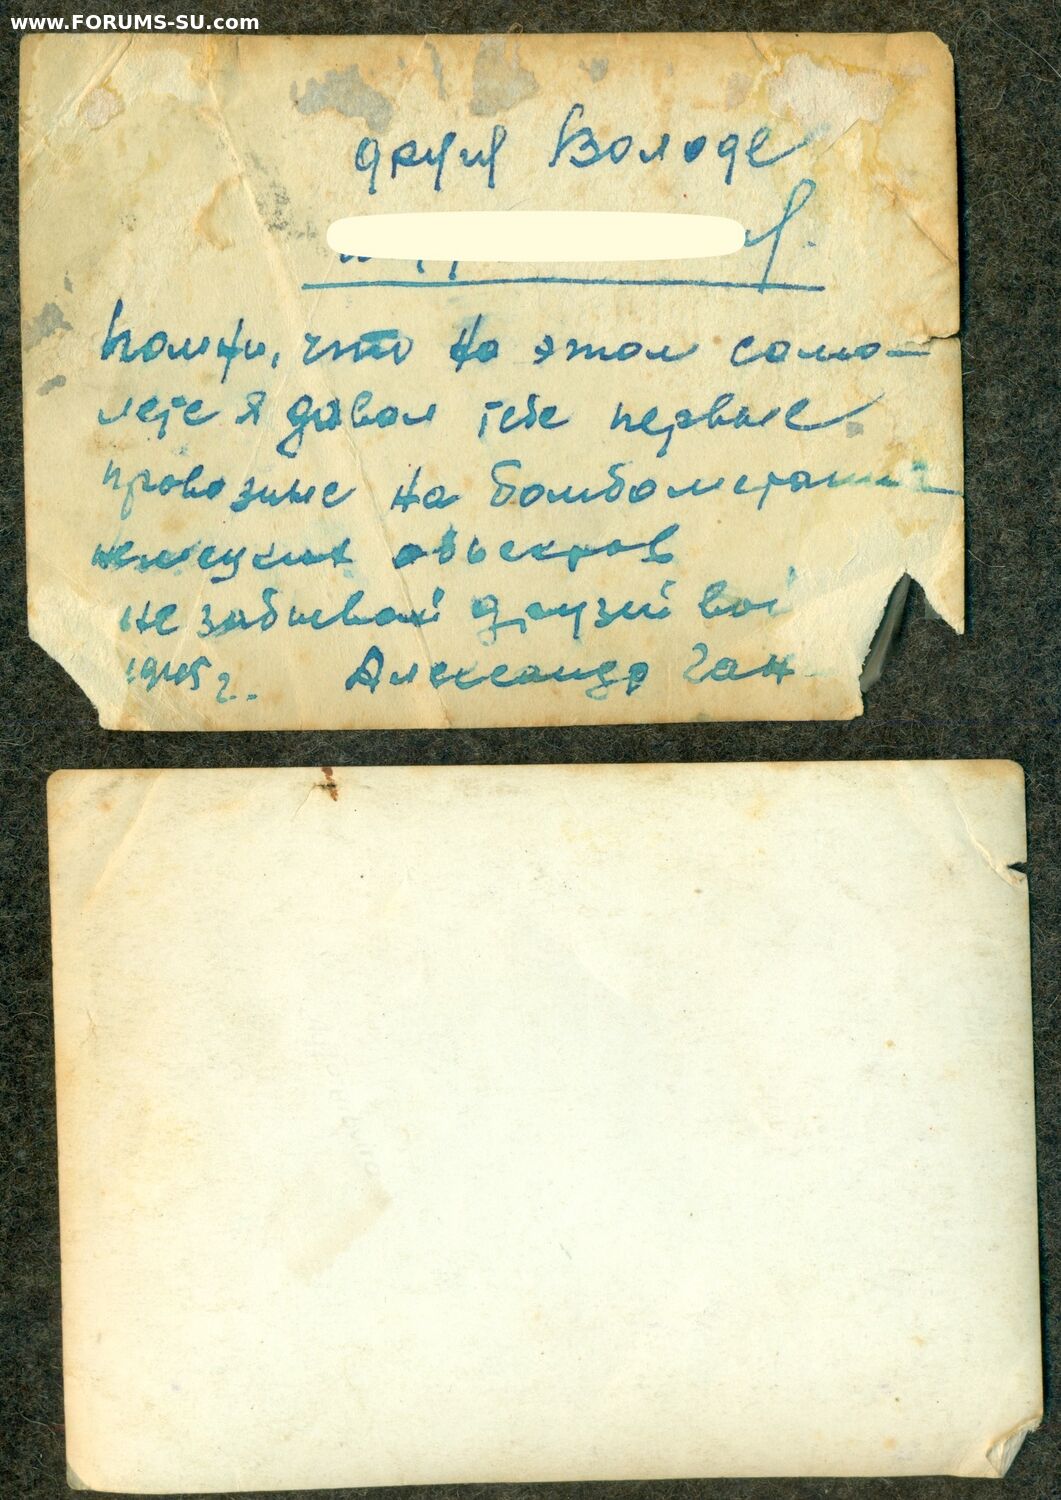 www.FORUMS-SU.com
другу Володе
Помни, что на этом само-
лете я давал тебе первые
провозные на бомбометание
немецких объектов
не забывай друзей
1945 г. Александр Ган